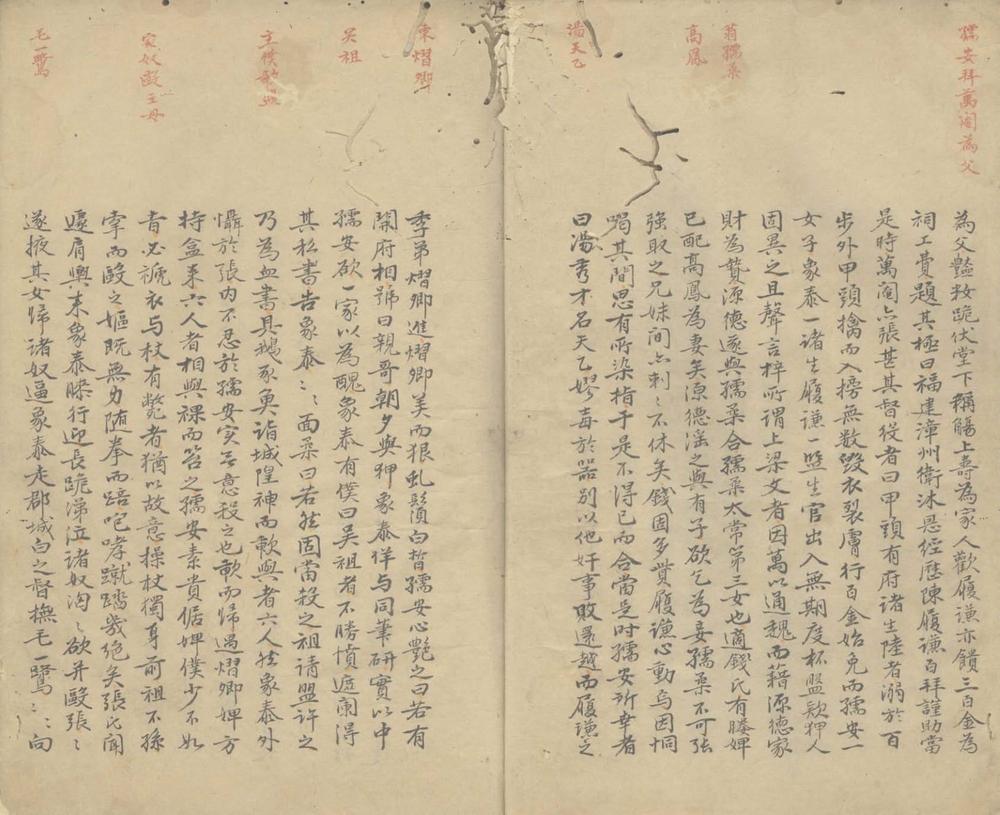 孺安拜萬閹為父
翁孺柔
高鳳
湯天乙
為父豔妝跪伏堂下稱觴上壽為家人歡履謙亦饋三百金為
祠工費題其極曰福建漳州衛沐恩經歷陳履謙百拜謹助當
是時萬閹亦張甚其督役者曰甲頭有府諸生陸者溺於百
步外甲頭擒而入搒無數毀衣裂膚行百金始免而孺安一
女子象泰一諸生履謙一監生官出入無期度杯盤款狎人
固異之且聲言梓所謂上梁文者因萬以通魏而藉源德家
財為贄源德遂與孺柔合孺柔太常第三女也適錢氏有媵婢
已配高鳳為妻矣源德淫之與有子欲乞為妾孺柔不可張
強取之兄妹間亦刺〻不休矣錢固多貲履謙心動乌因恫
喝其間思有所染指于是不得已而合當是时孺安所幸者
曰湯秀才名天乙嫪毒於嚣别以他奸事敗還越而履謙之
秉熠卿
吳祖
主僕歃血
家奴毆主母
毛一鷺
季弟熠卿進熠卿美而狠虬鬚白皙孺安心艷之曰若有
開府相號曰親哥朝夕與狎象泰佯与同筆研實以中
孺安欲一家以為醜象泰有僕曰吳祖者不勝憤遮闌得
其私書告象泰〻〻面柔曰若然固當殺之祖请盟許之
乃為血書具鵝豕魚詣城隍神而歃與者六人然象泰外
懾於張内不忍於孺安实无意殺之也歃而歸遇熠卿婢方
持盒来六人者相與裸而笞之孺安素貴倨婢僕少不如
者必褫衣与杖有斃者猶以故意操杖獨身前祖不孫
拏而毆之嫗既無力随拳而踣咆哮蹴踏幾絕矣張氏聞
遽肩輿来象泰膝行迎長跪涕泣諸奴洶〻欲并毆張〻
遂掖其女歸诸奴逼象泰走郡城白之督撫毛一鷺〻〻向